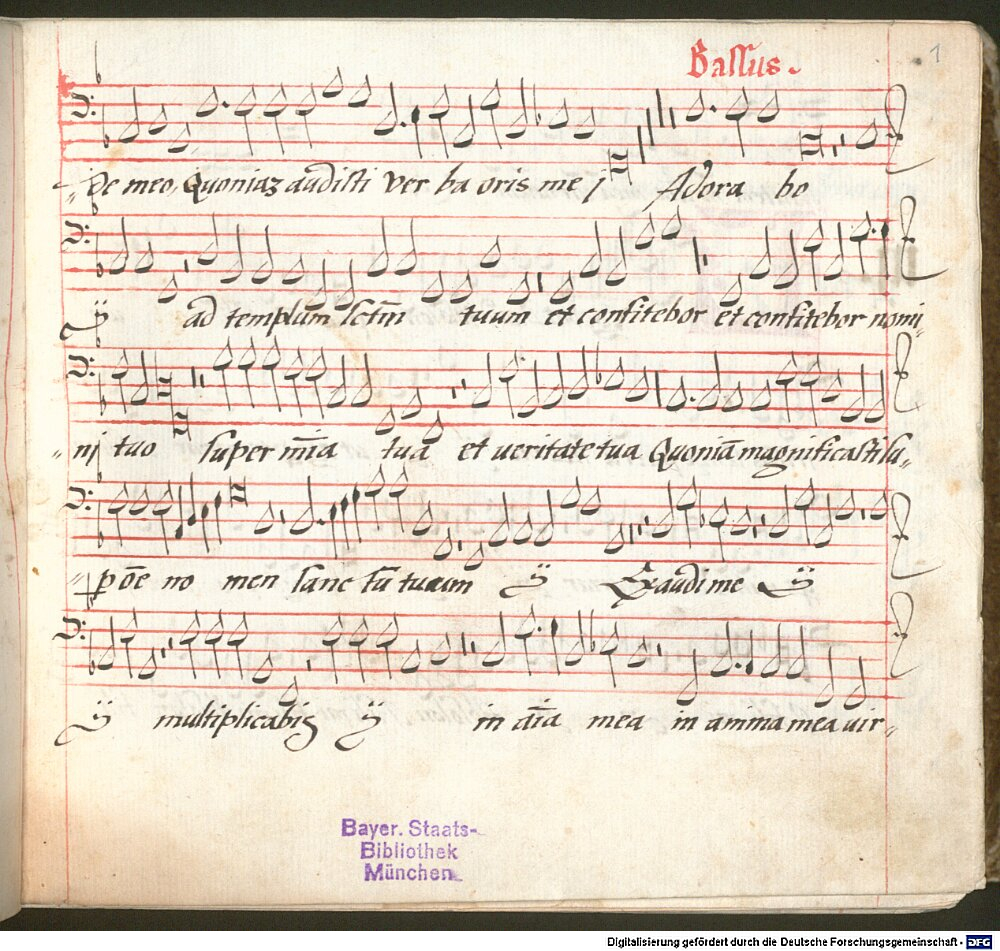 Bassus.
1
De meo, Quoniaz audisti ver ba oris me j Adora bo
ij ad templum sctm̄ tuum et confitebor et confitebor nomi
nj tuo super m̄ia tua et veritate tua Quoniā magnificasti su
p oē no men sanc tū tuum ij Exaudi me ij
ij multiplicabis ij in aīa mea in anima mea vir
Bayer. Staats-
Bibliothek
München
Digitalisierung gefördert durch die Deutsche Forschungsgemeinschaft - DFG